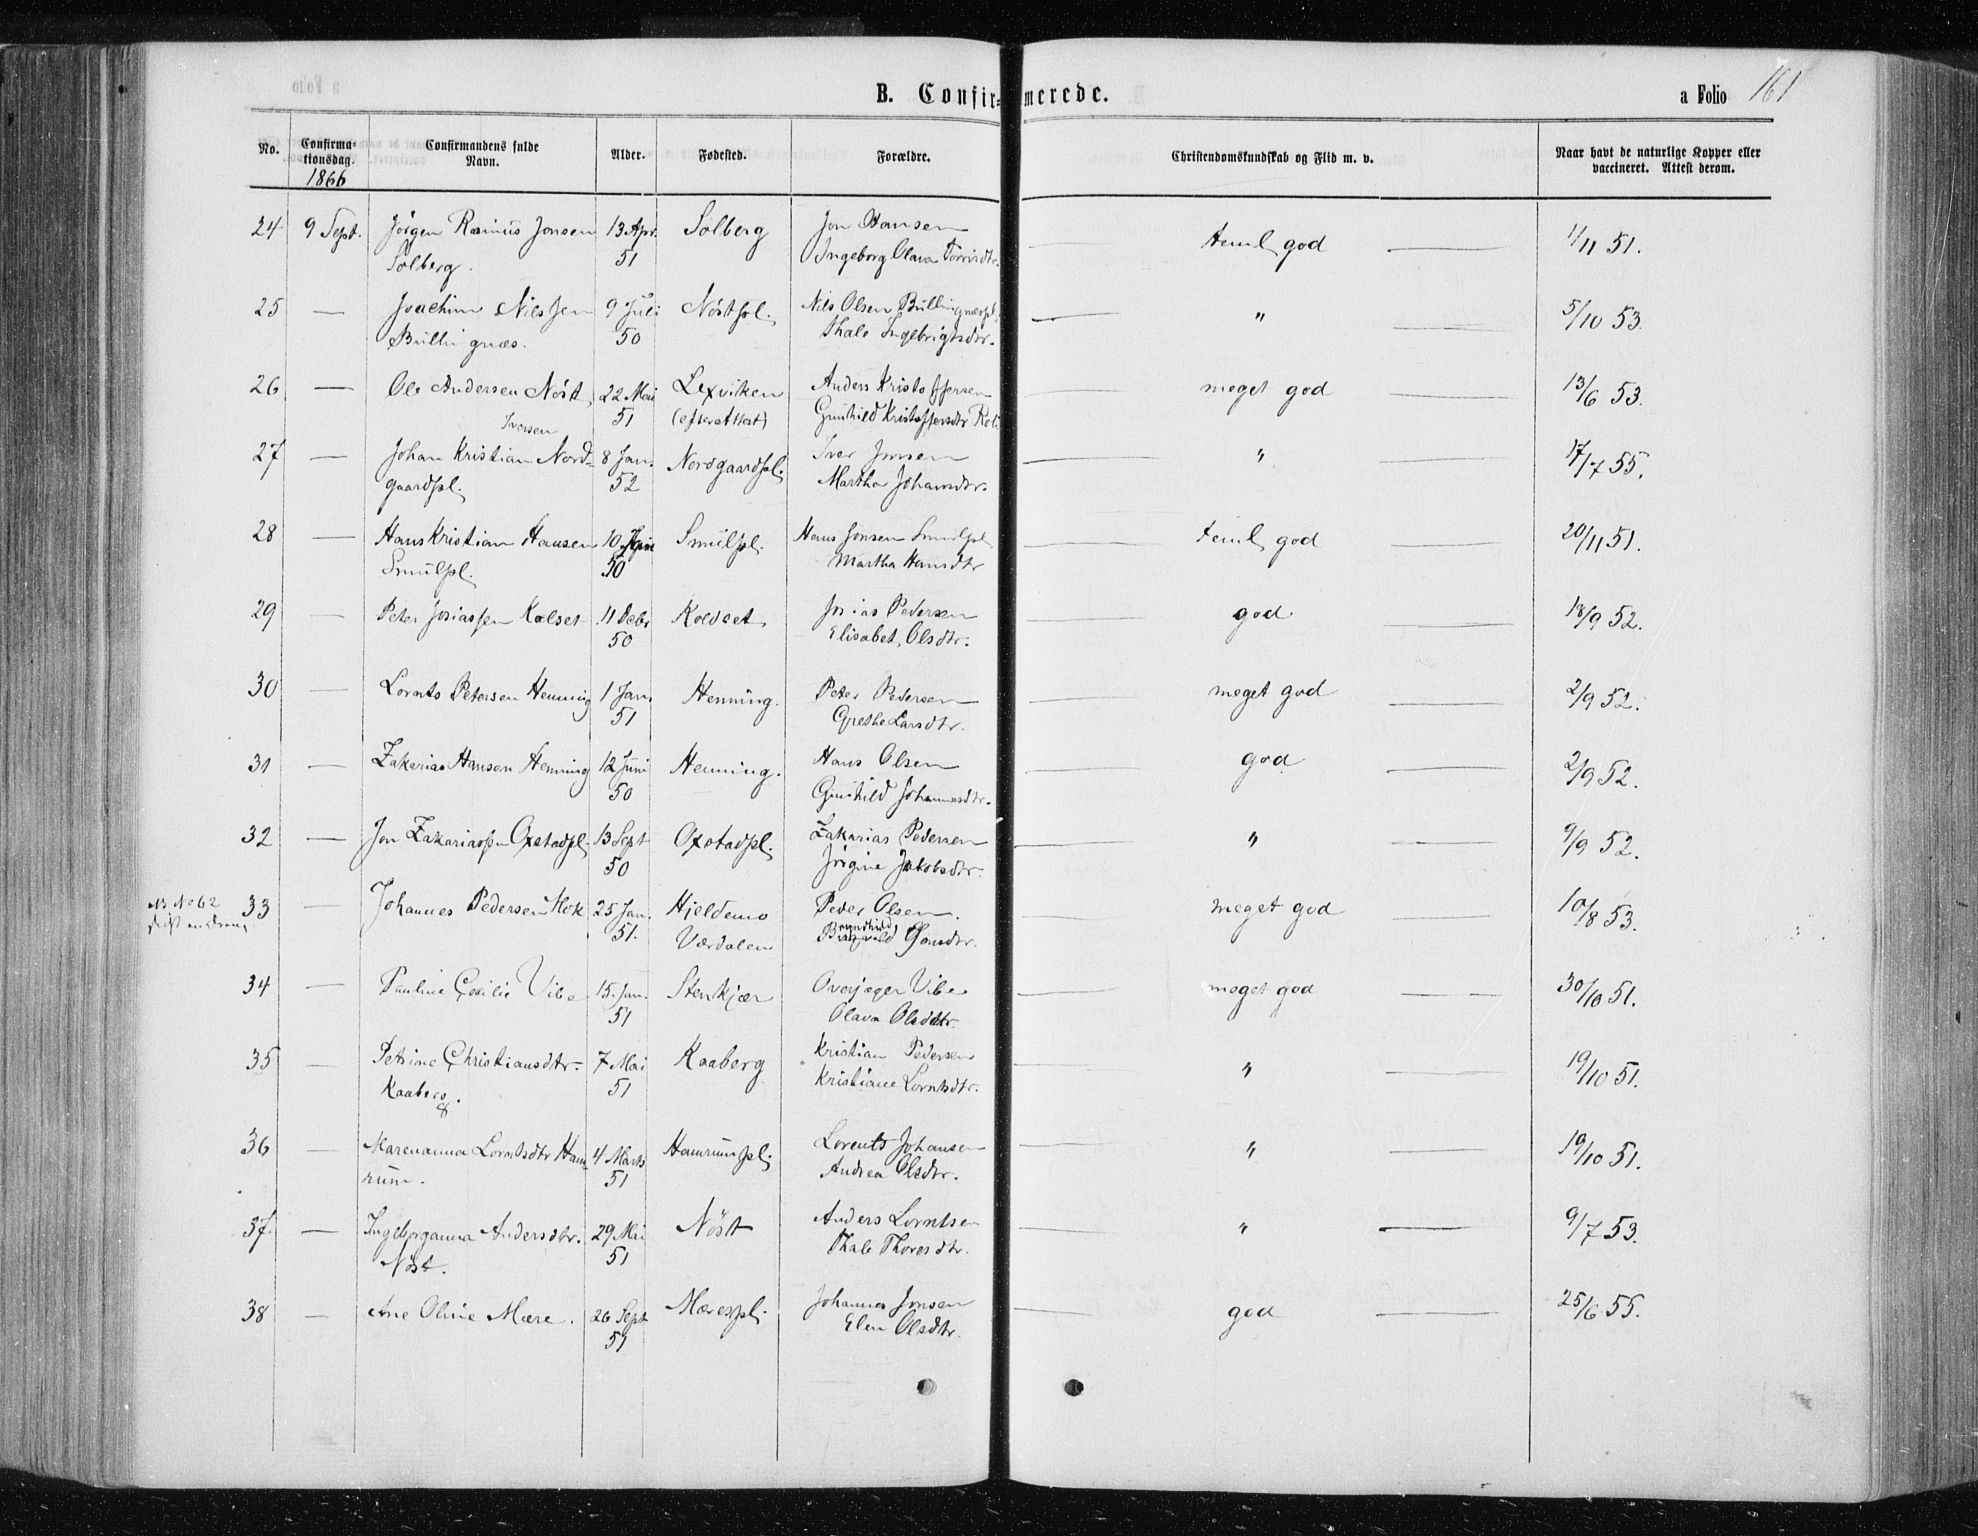 B. Confirmerede.
a Folio 161
No. Confirmationsdag. Confirmandens fulde Navn. Alder. Fødested. Forældre. Christendomskundskab og Flid m. v. Naar havt de naturlige Kopper eller vaccineret. Attest derom.
1866
24 9 Sept. Jörgen Rasmus Jonsen 13 Apr. Solberg Jon Hansen teml god 1/11 51.
Solberg. 51 Ingeborg Olava
25 — Joachim Nilssen 9 Juli Nöstpl. Nils Olsen " 5/10 53.
Bullignæs. 50 Thale Ingebrigtsdtr.
26 — Ole Andersen Nöst 22 Mai Lexviken Anders Kristoffersen meget god 13/6 53.
51 (efter attest) Gunhild Kristoffersdtr
Iversen
27 — Johan Kristian Nord- 8 Jan. Nordgaardspl. Iver Jonsen " 17/7 55.
gaardspl. 52 Martha Johansdtr.
28 — Hans Kristian Hansen 10 Smulpl. Hans Jonsen Smulpl teml god 20/11 51.
Smulpl. 50 Martha Hansdtr
29 — Peter Josiassen Kolset 11 Debr Koldset Josias Pedersen god 18/9 52.
50 Elisabet Olsdtr.
30 — Lornts Petersen Henning 1 Jan. Henning. Peter Pedersen meget god 2/9 52.
51 Grethe Larsdtr.
31 — Zakarias Hansen Henning 12 Juni Henning. Hans Olsen god 2/9 52.
50 Gunhild Johannesdtr.
32 — Jon Zakariassen Oxstadpl. 13 Sept Oxstadpl. Zakarias Pedersen " 9/9 52.
50 Jörgine Jakobsdtr.
NB No 62
33 — Johannes Pedersen Mok 25 Jan. Hjeldemo Peder Olsen. meget god 10/8 53.
51. Værdalen Jonsdtr.
34 — Pauline Cecilie Vibe 15. Jan. Stenkjær Overjæger Vibe meget god 30/10 51.
51 Olava Olsdtr.
35 — Petrine Christiansdtr. 7 Mai Kaaberg Kristian Pedersen " 19/10 51.
Kaaberg. 51 Kristiane Lorntsdtr.
36 — Marenanna Lorntsdtr Ham 4 Marts Hamrumpl. Lorents Johansen " 19/10 51.
rum. 51 Andrea Olsdtr.
37. — Ingeborganna Andersdtr. 29 Mai Nöst Anders Lorntsen " 9/7 53.
Nöst. 51 Thale Thoresdtr.
38 — Ane Oline Mære. 26 Sept Mærespl. Johannes Jonsen god 25/6 55.
51 Elen Olsdtr.